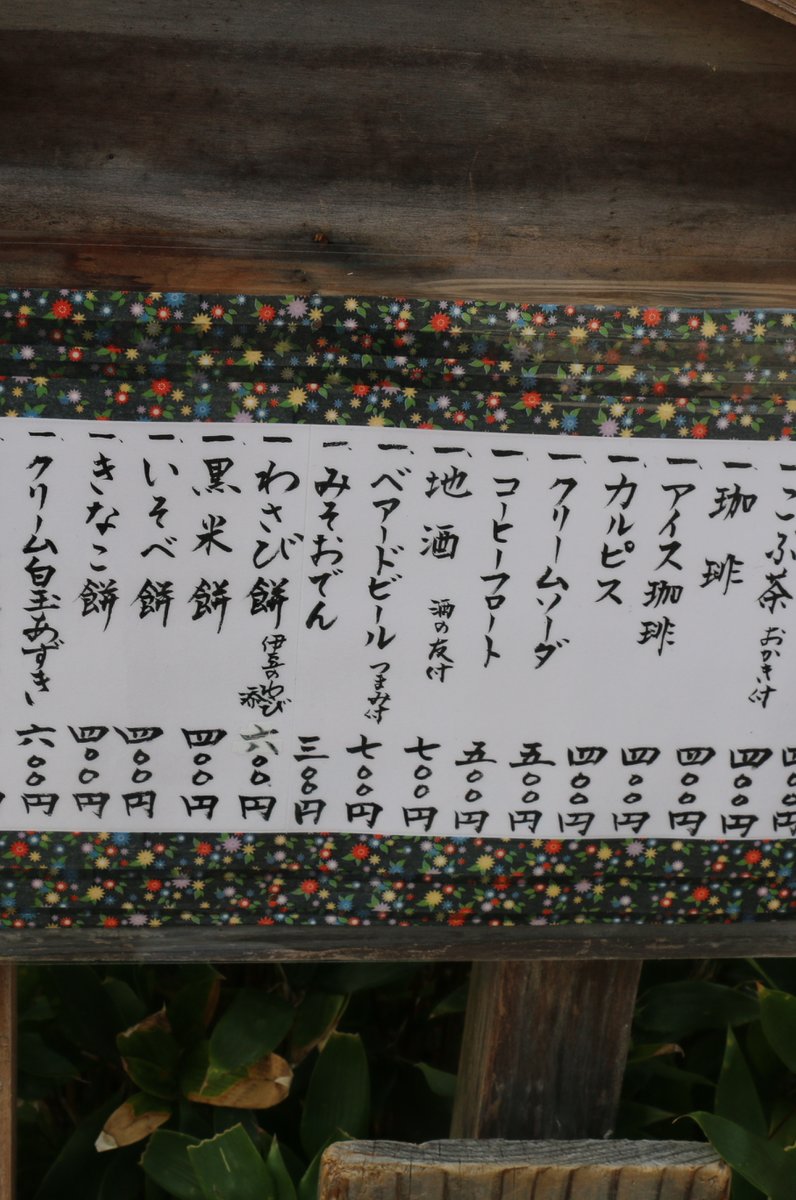 こぶ茶 おかき付 四〇〇円
一、珈琲 四〇〇円
一、アイス珈琲 四〇〇円
一、カルピス 四〇〇円
一、クリームソーダ 五〇〇円
一、コーヒーフロート 五〇〇円
一、地酒 酒の友付 七〇〇円
一、ベアードビール つまみ付 七〇〇円
一、みそおでん 三〇〇円
一、わさび餅 伊豆のわさび添 六〇〇円
一、黒米餅 四〇〇円
一、いそべ餅 四〇〇円
一、きなこ餅 四〇〇円
一、クリーム白玉あずき 六〇〇円